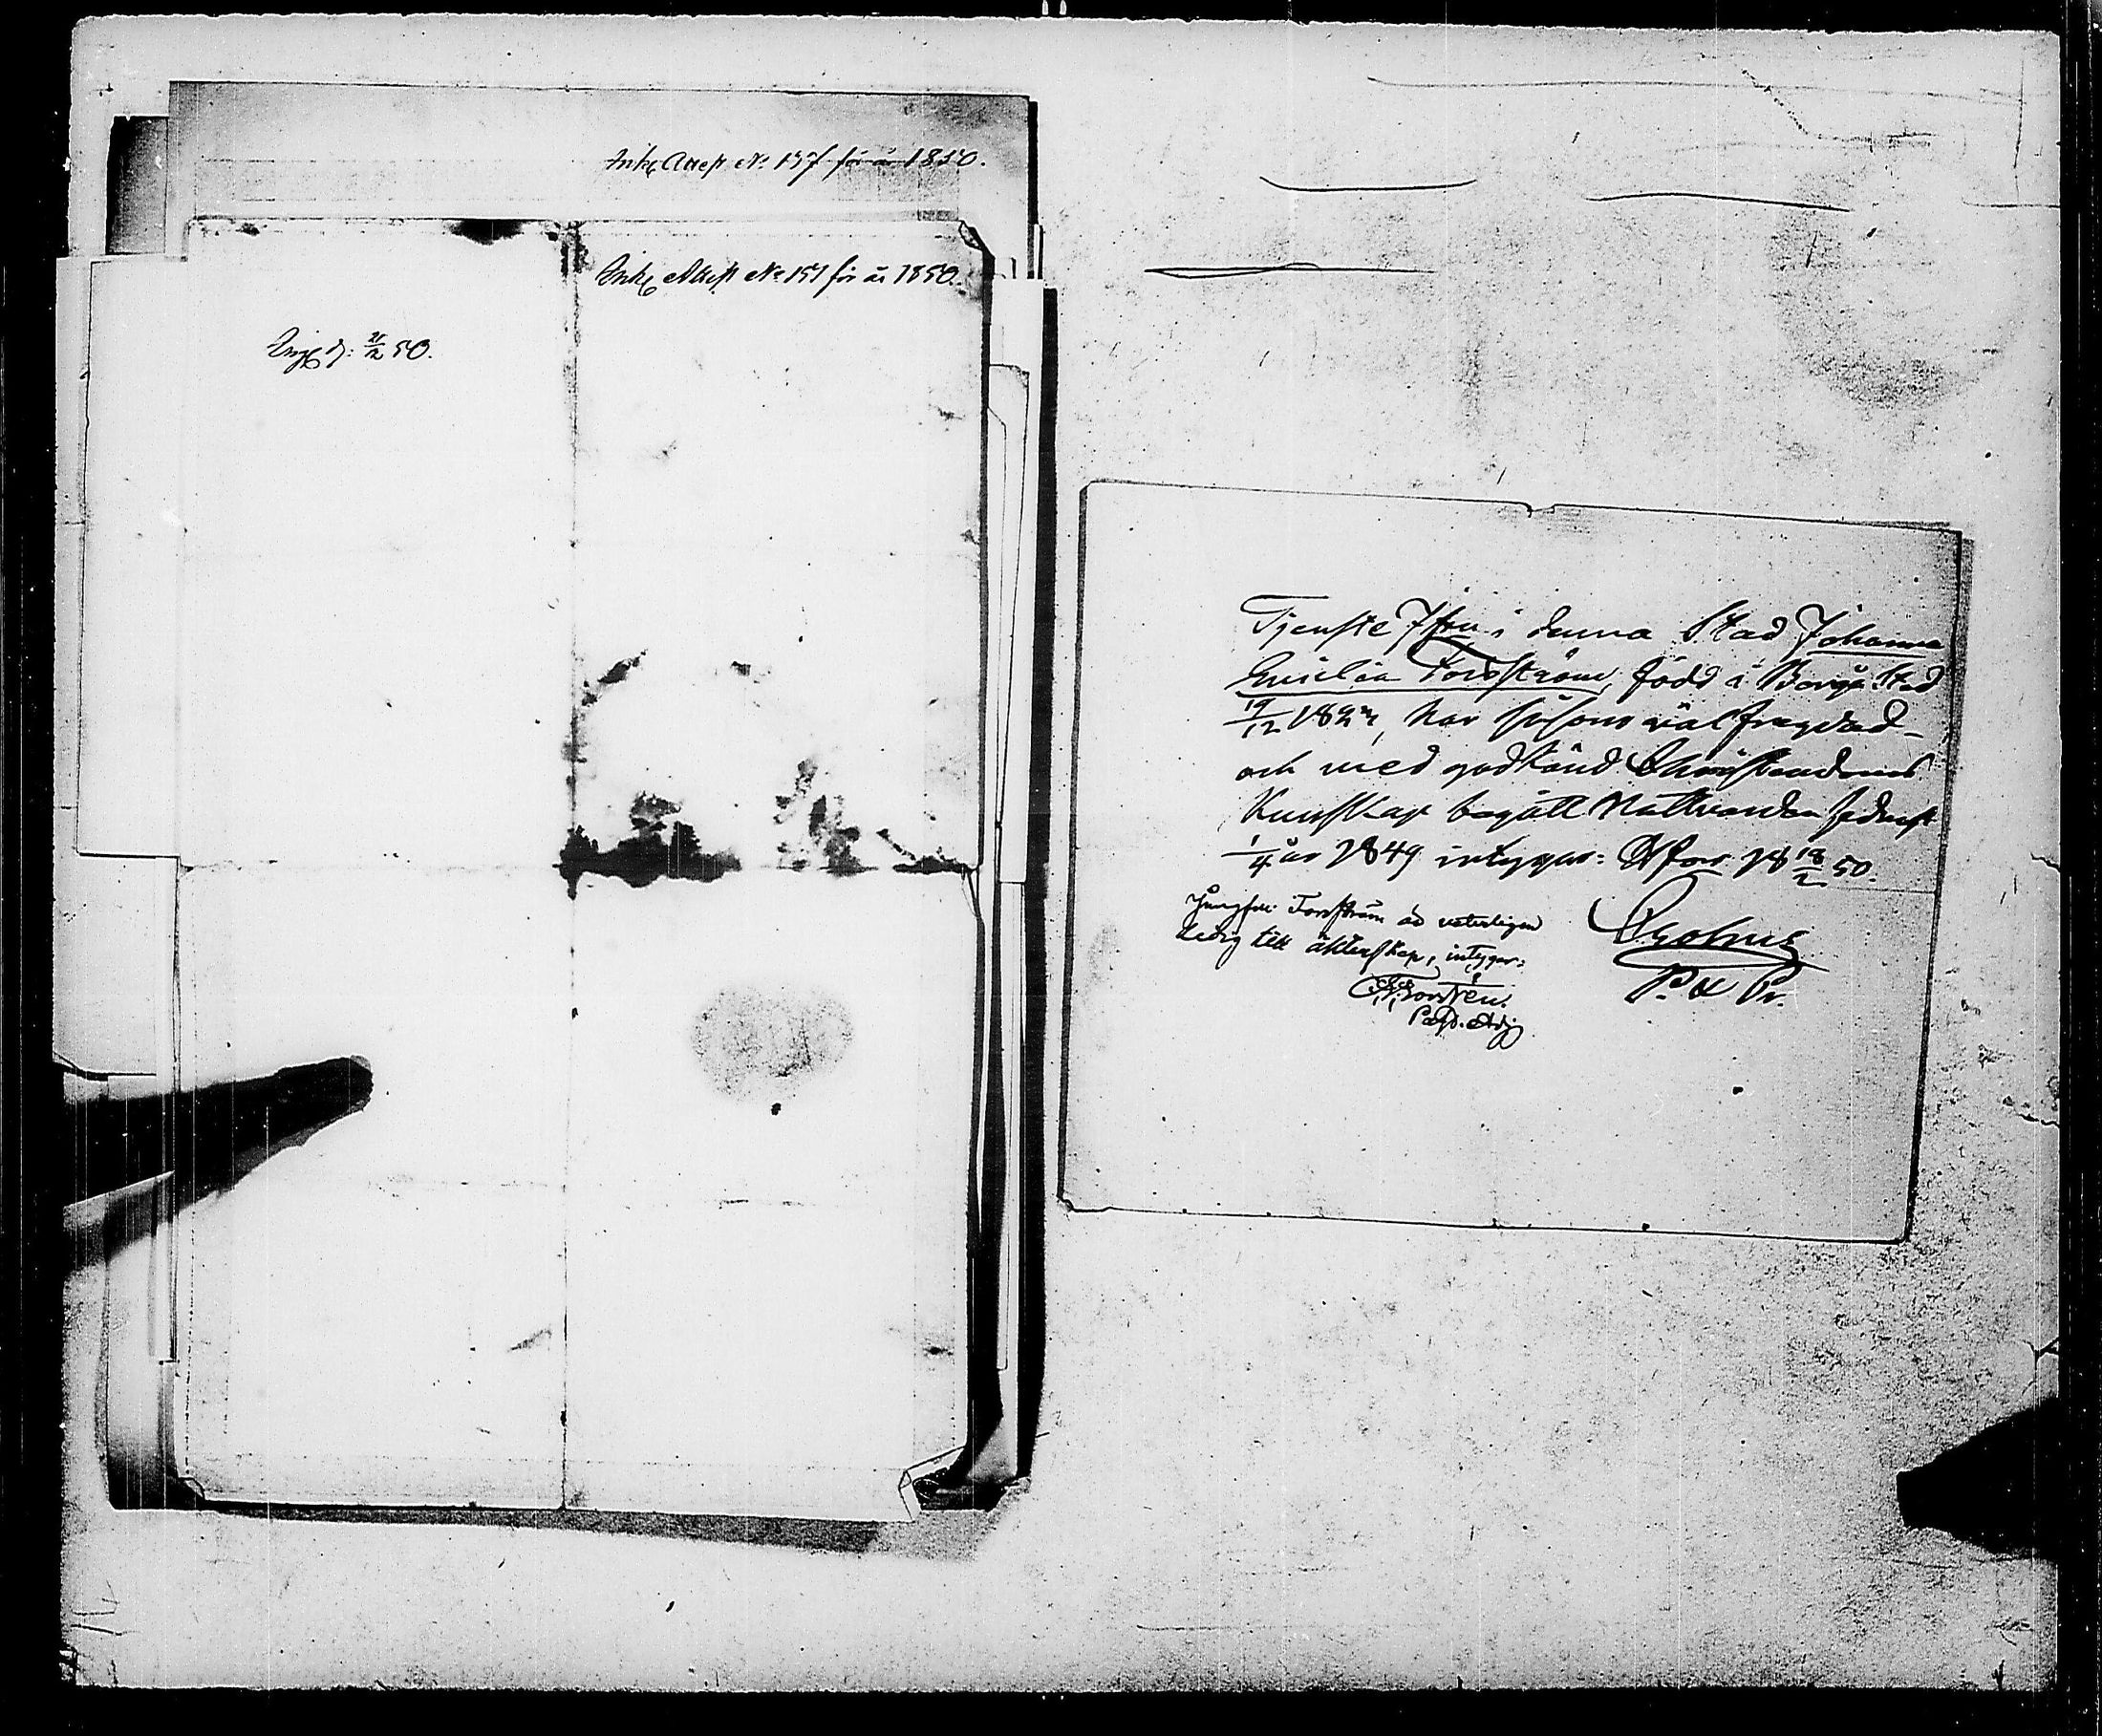 Ink. Attest No 157 för år 1850.
Ink. Attest No 151 för år 1850.
50.
Tjenste Jfru i denna Stad Johanna
Emilia Forsström, född i Borgå Stad
19/12 1822, har såsom väl frägdad
och med godkänd Christendoms
Kunskap begått Nattvarden sednast
1/4 år 1849 intygar: H:fors 18 18/2 50.
P. & Pr.
Jungfru Forsström är veterligen
ledig till äktenskap, intygar:
Adj